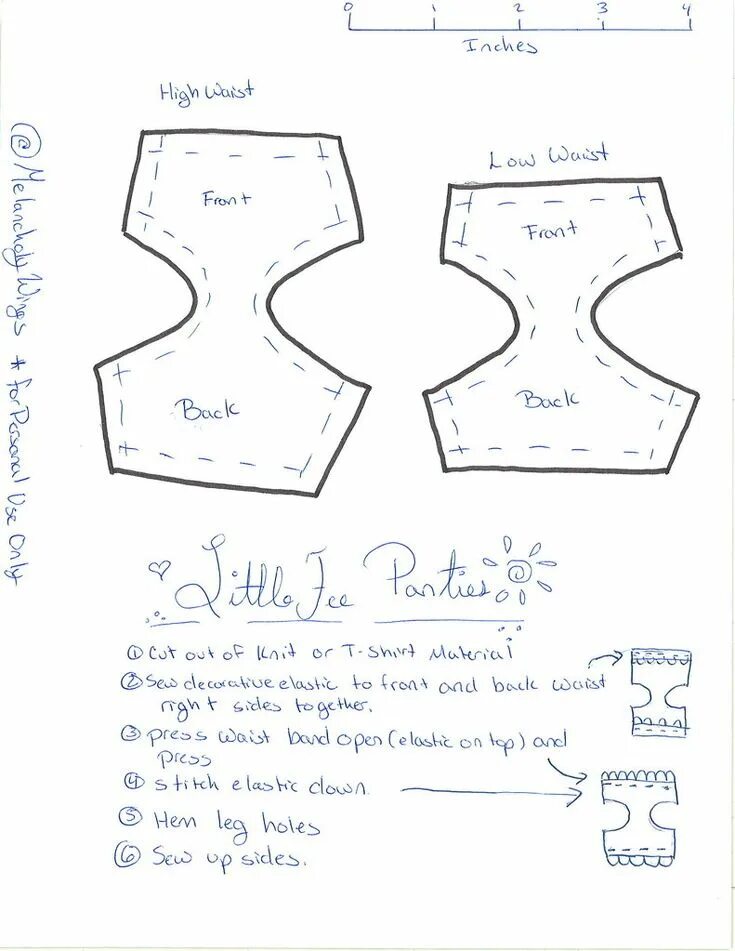 0 1 2 3 4
Inches
High Waist
Low Waist
Front
Front
Back
Back
@MelancholyWings * for Personal Use Only
Little Fee Panties
① Cut out of Knit or T-Shirt Material
② Sew decorative elastic to front and back waist
right sides together.
③ press waist band open (elastic on top) and
press
④ stitch elastic down.
⑤ Hem leg holes
⑥ Sew up sides.